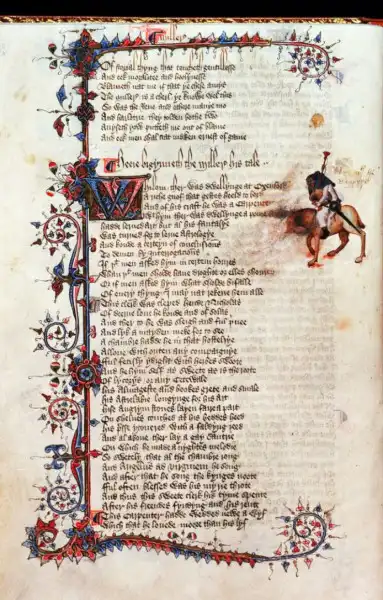 Miller
Of storial thyng that toucheth gentillesse
And eek moralitee and hoolynesse
Blameth nat me if that ye chese amys
The Millere is a cherl ye knowe wel this
So was the Reue and othere manye mo
And harlotrie they tolden bothe two
Auyseth yow putteth me out of blame
And eek men shal nat maken ernest of game
Heere bigynneth the Millere his tale
Whilom ther was dwellynge at Oxenford
A riche gnof that gestes heeld to bord
And of his craft he was a Carpenter
With hym ther was dwellynge a poure
Hadde lerned Art but al his fantasye
Was turned for to lerne Astrologye
And koude a certeyn of conclusions
To demen by interrogacions
If þt men asked hym in certein houres
Whan þt men sholde haue droghte or elles shoures
Or if men asked hym what sholde bifalle
Of euery thyng I may nat rekene hem alle
This clerk was cleped hende Nicholas
Of deerne loue he koude and of solas
And ther to he was sleigh and ful priuee
And lyk a mayden meke for to see
A chambre hadde he in that hostelrye
Allone with outen any compaignye
Ful fetisly ydight with herbes swoote
And he hym self as sweete as is the roote
Of lycorys or any Cetewale
His Almageste and bookes grete and smale
His Astrelabie longynge for his art
His Augrym stones layen faire apart
On shelues couched at his beddes heed
His presse ycouered with a faldyng reed
And al aboue ther lay a gay Sautrie
On which he made a nyghtes melodie
So swetely that al the chambre rong
And Angelus ad virginem he song
And after that he song the kynges noote
Ful often blessed was his myrie throte
And thus this sweete clerk his tyme spente
After his freendes fyndyng and his rente
This Carpenter hadde wedded newe a wyf
Which that he louede moore than his lyf